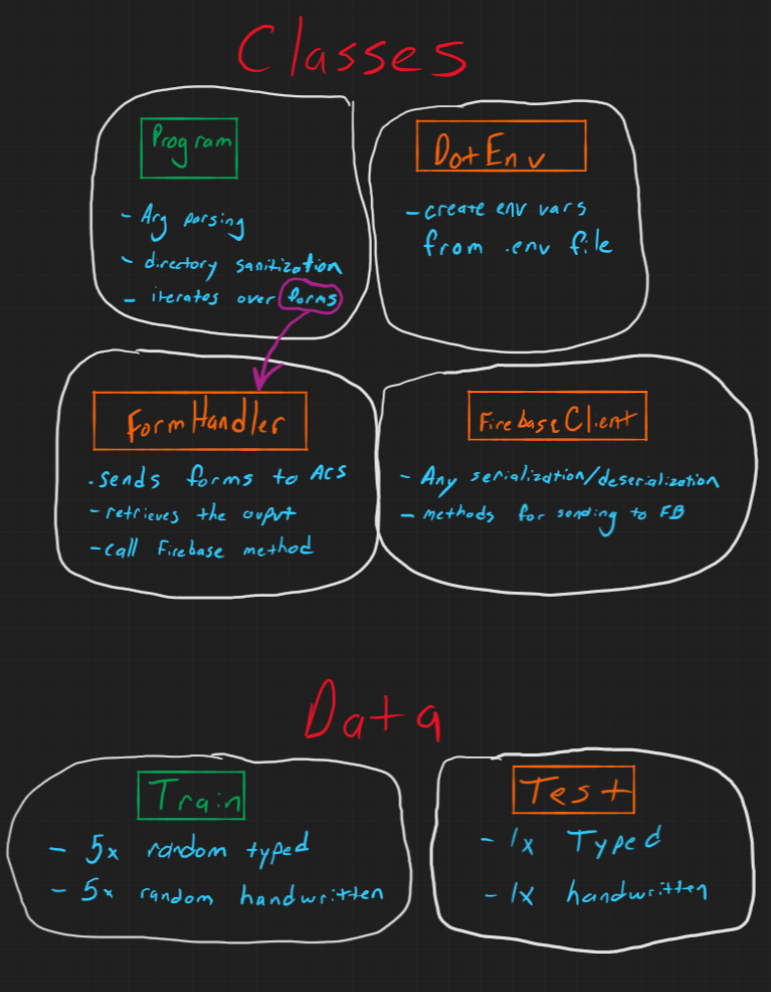 Classes
Program
- Arg parsing
- directory sanitization
- iterates over forms
DotEnv
- create env vars
from .env file
FormHandler
. sends forms to ACS
- retrieves the ouput
- call Firebase method
FirebaseClient
- Any serialization/deserialization
- methods for sending to FB
Data
Train
- 5x random typed
- 5x random handwritten
Test
- 1x Typed
- 1x handwritten